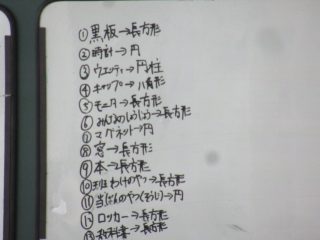 ①黒板→長方形
②時計→円
③ウエッティ→円柱
④キャップ→八角形
⑤モニター→長方形
⑥みんなのしょうじょう→長方形
⑦マグネット→円
⑧窓→長方形
⑨本→長方形
⑩班わけのやつ→長方形
⑪当ばんのやつ(そうじ)→円
⑫ロッカー→長方形
⑬教科書→長方形